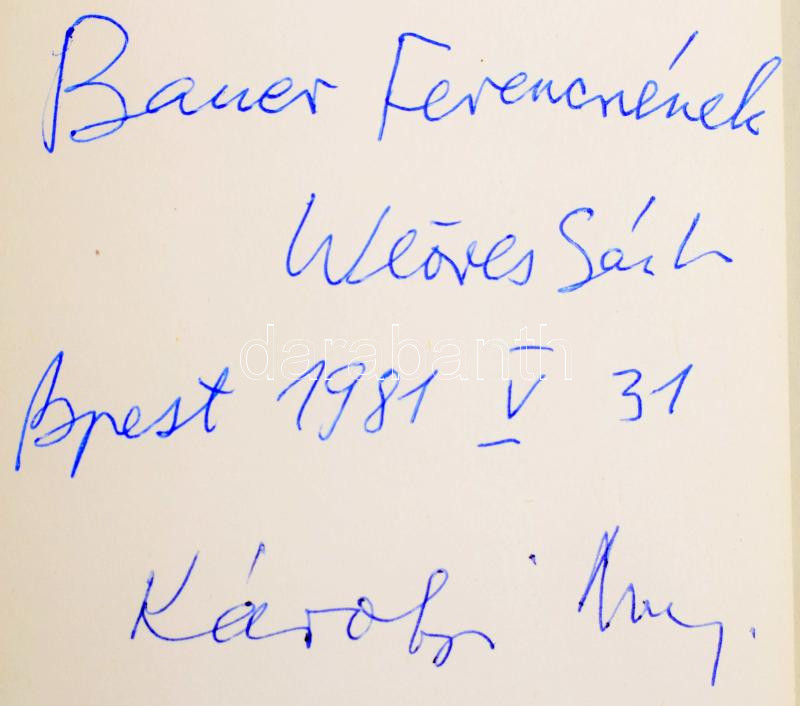 Bauer Ferencnének
Weöres Sándor
darabanth
Bpest 1981 V 31
Károlyi Amy.